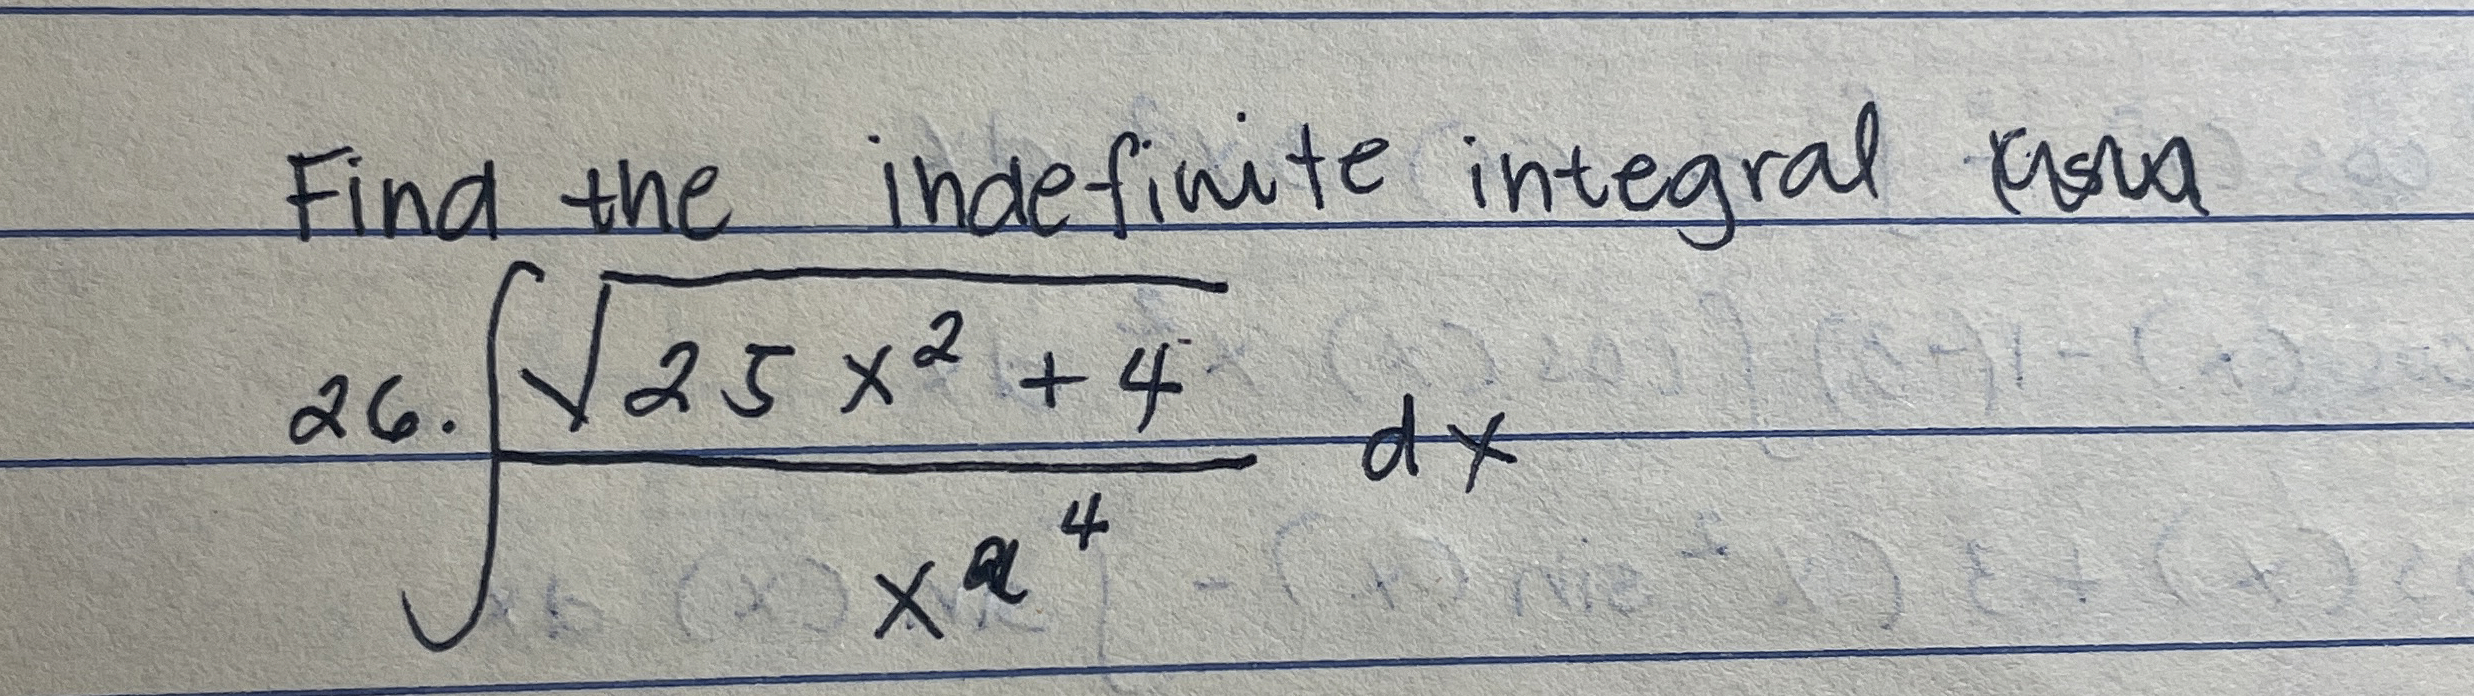 Find the indefinite integral
26. ∫ √(25x² + 4) / x⁴ dx